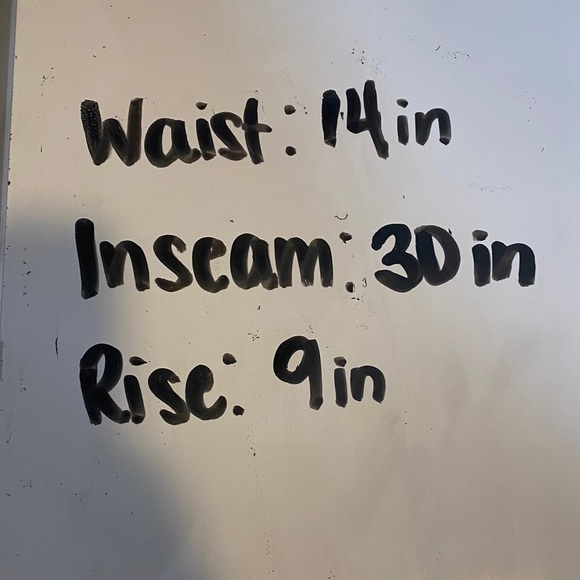 Waist: 14in
Inseam: 30in
Rise: 9in